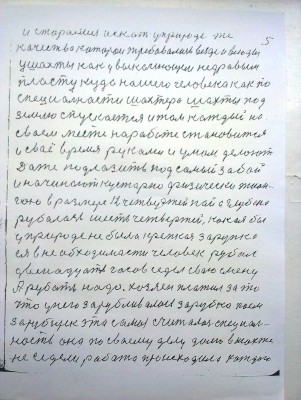 и старался искат уприроде те
5
качества которой требовалися везде и всюду
у шахты как
пласту куда нашего человека как по
специалности шахтера шахты под
землю спускается и там каждый на
своем месте на работе становится
и своё время руками и умом делают
Даже подлазить под самый забой
и начинают кустарно физически
в размере 12 четвертей пай а глубина
рубалася шесть четвертей, какая бы
у природе не была крепкая зарупка
ся в необходимасти человек рубал
двенадцать часов седел свою смену
А рубать надо. хозяен платил за то
что у него зарубливалася зарубка
зарубщек эта самая считалас специал-
ность она по своему делу дома в шахте
не седели работа происходила каждого